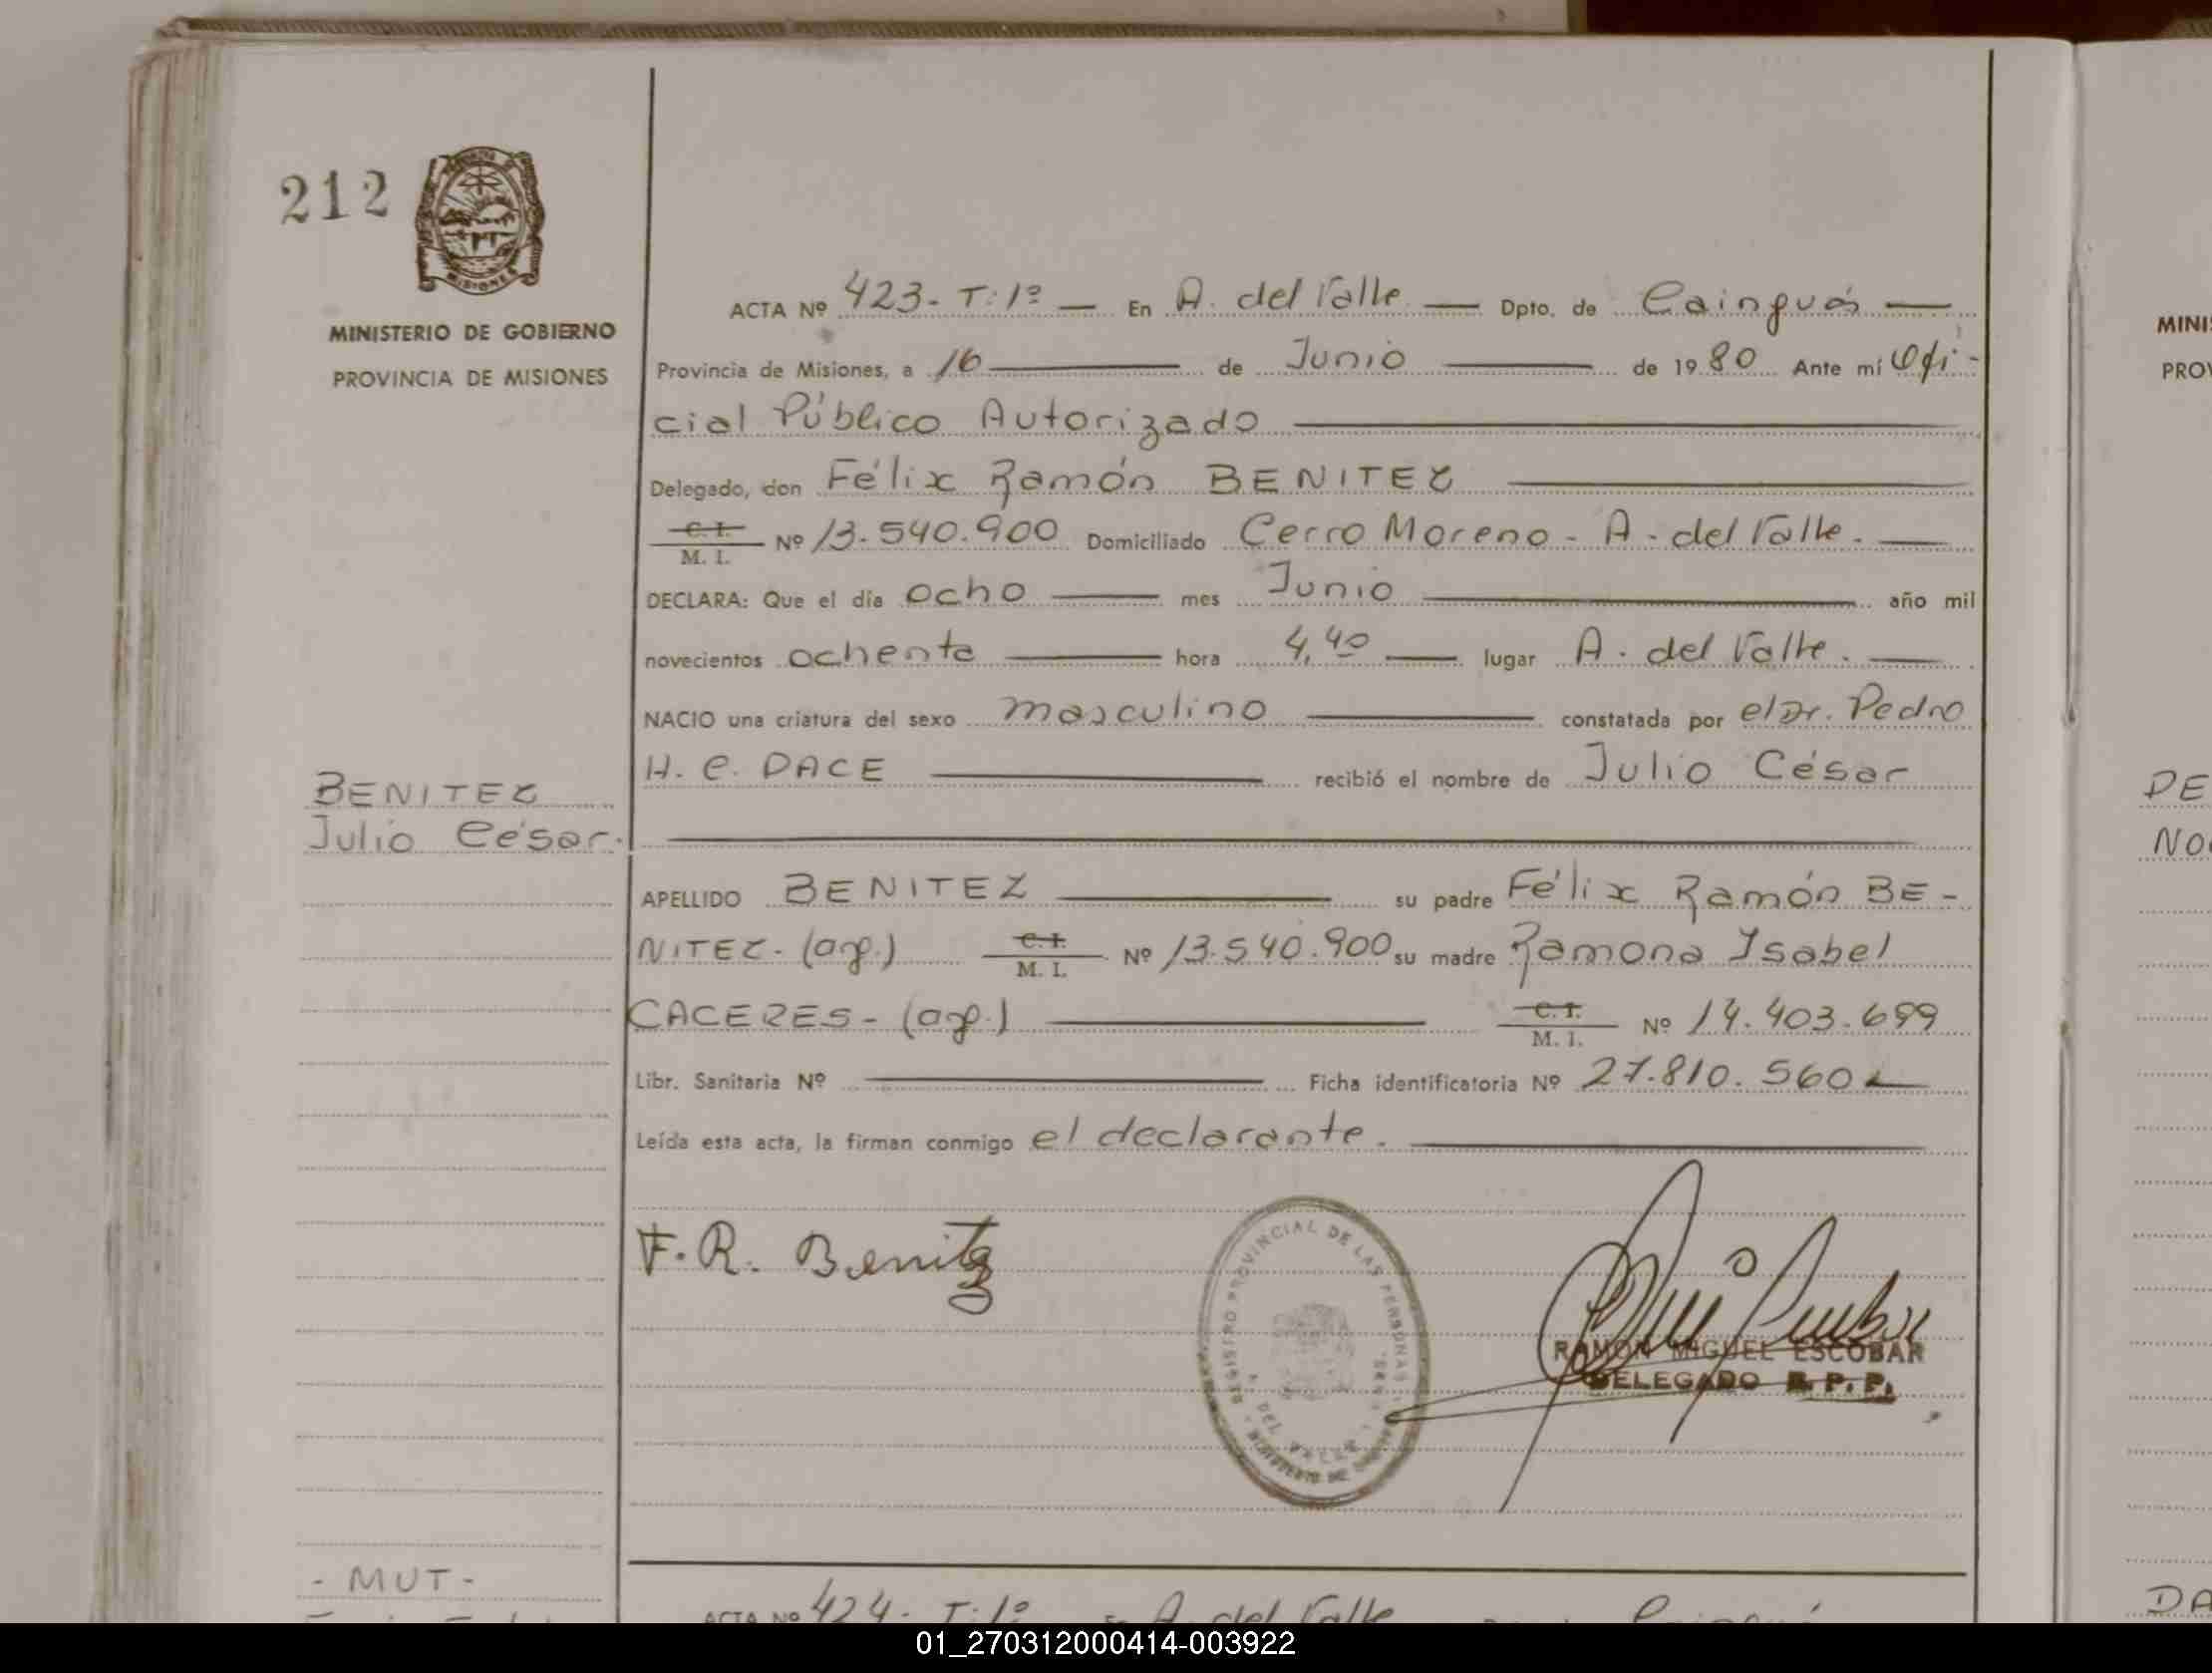 212
MISIONES
MINISTERIO DE GOBIERNO
PROVINCIA DE MISIONES
BENITEZ
Julio César.
- MUT -
ACTA Nº 423- T: 1º — En A. del Valle — Dpto. de Cainguás —
Provincia de Misiones, a 16 — de Junio — de 1980 Ante mí Ofi-
cial Público Autorizado —
Delegado, don Félix Ramón BENITEZ —
C. I.
M. I. Nº 13.540.900 Domiciliado Cerro Moreno - A. del Valle. —
DECLARA: Que el día ocho — mes Junio — año mil
novecientos ochenta — hora 4,40 — lugar A. del Valle. —
NACIO una criatura del sexo masculino — constatada por el Dr. Pedro
H. C. DACE — recibió el nombre de Julio César
APELLIDO BENITEZ — su padre Félix Ramón BE-
NITEZ - (arg.) C. I.
M. I. Nº 13.540.900 su madre Ramona Isabel
CACERES - (arg.) — C. I.
M. I. Nº 14.403.699
Libr. Sanitaria Nº — Ficha identificatoria Nº 27.810.560
Leída esta acta, la firman conmigo el declarante. —
F. R. Benitez
REGISTRO PROVINCIAL DE LAS PERSONAS
DEL VALLE
RAMON MIGUEL ESCOBAR
DELEGADO R. P. P.
ACTA Nº 424- T: 1º En A. del Valle
MINIS
PROV
DE
NO
DA
01_270312000414-003922